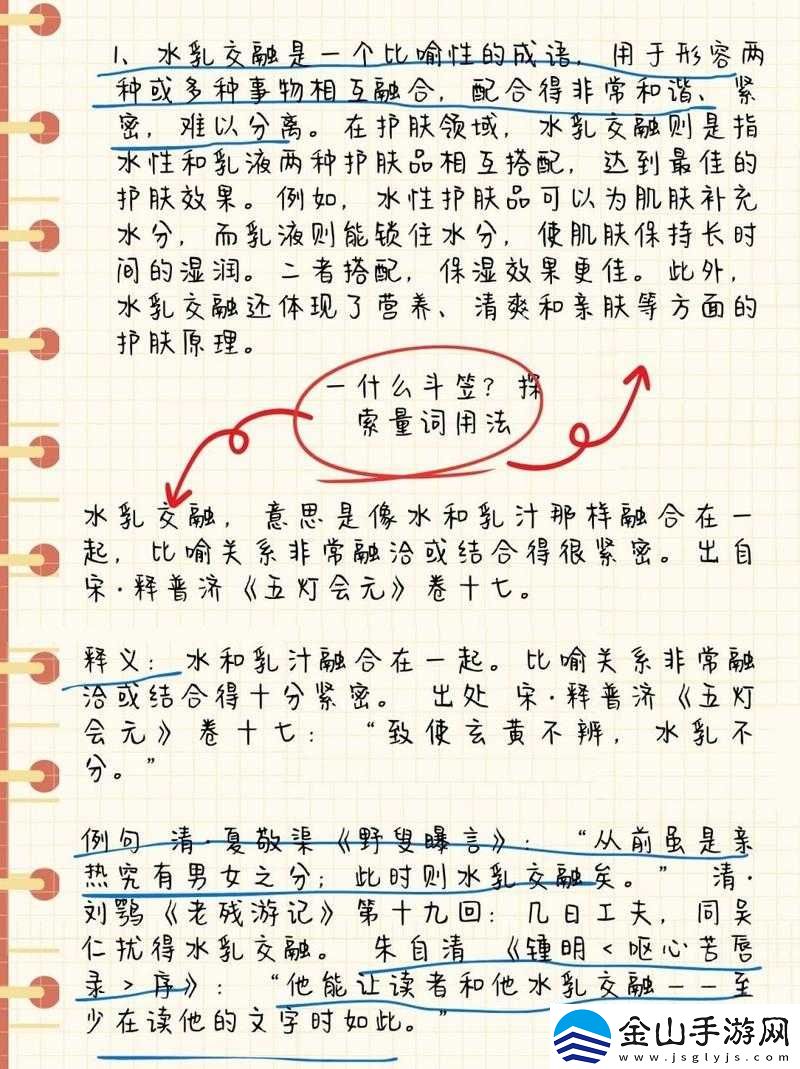 1、水乳交融是一个比喻性的成语，用于形容两
种或多种事物相互融合，配合得非常和谐、紧
密，难以分离。在护肤领域，水乳交融则是指
水性和乳液两种护肤品相互搭配，达到最佳的
护肤效果。例如，水性护肤品可以为肌肤补充
水分，而乳液则能锁住水分，使肌肤保持长时
间的湿润。二者搭配，保湿效果更佳。此外，
水乳交融还体现了营养、清爽和亲肤等方面的
护肤原理。
一什么斗笠？探
索量词用法
水乳交融，意思是像水和乳汁那样融合在一
起，比喻关系非常融洽或结合得很紧密。出自
宋·释普济《五灯会元》卷十七。
释义：水和乳汁融合在一起。比喻关系非常融
洽或结合得十分紧密。 出处 宋·释普济《五灯
会元》卷十七：“致使玄黄不辨，水乳不
分。”
例句 清·夏敬渠《野叟曝言》：“从前虽是亲
热究有男女之分；此时则水乳交融矣。” 清·
刘鹗《老残游记》第十九回：几日工夫，同吴
仁扰得水乳交融。 朱自清 《锺明<呕心苦唇
录>序》：“他能让读者和他水乳交融——至
少在读他的文字时如此。”
金山手游网
www.jsglyjs.com